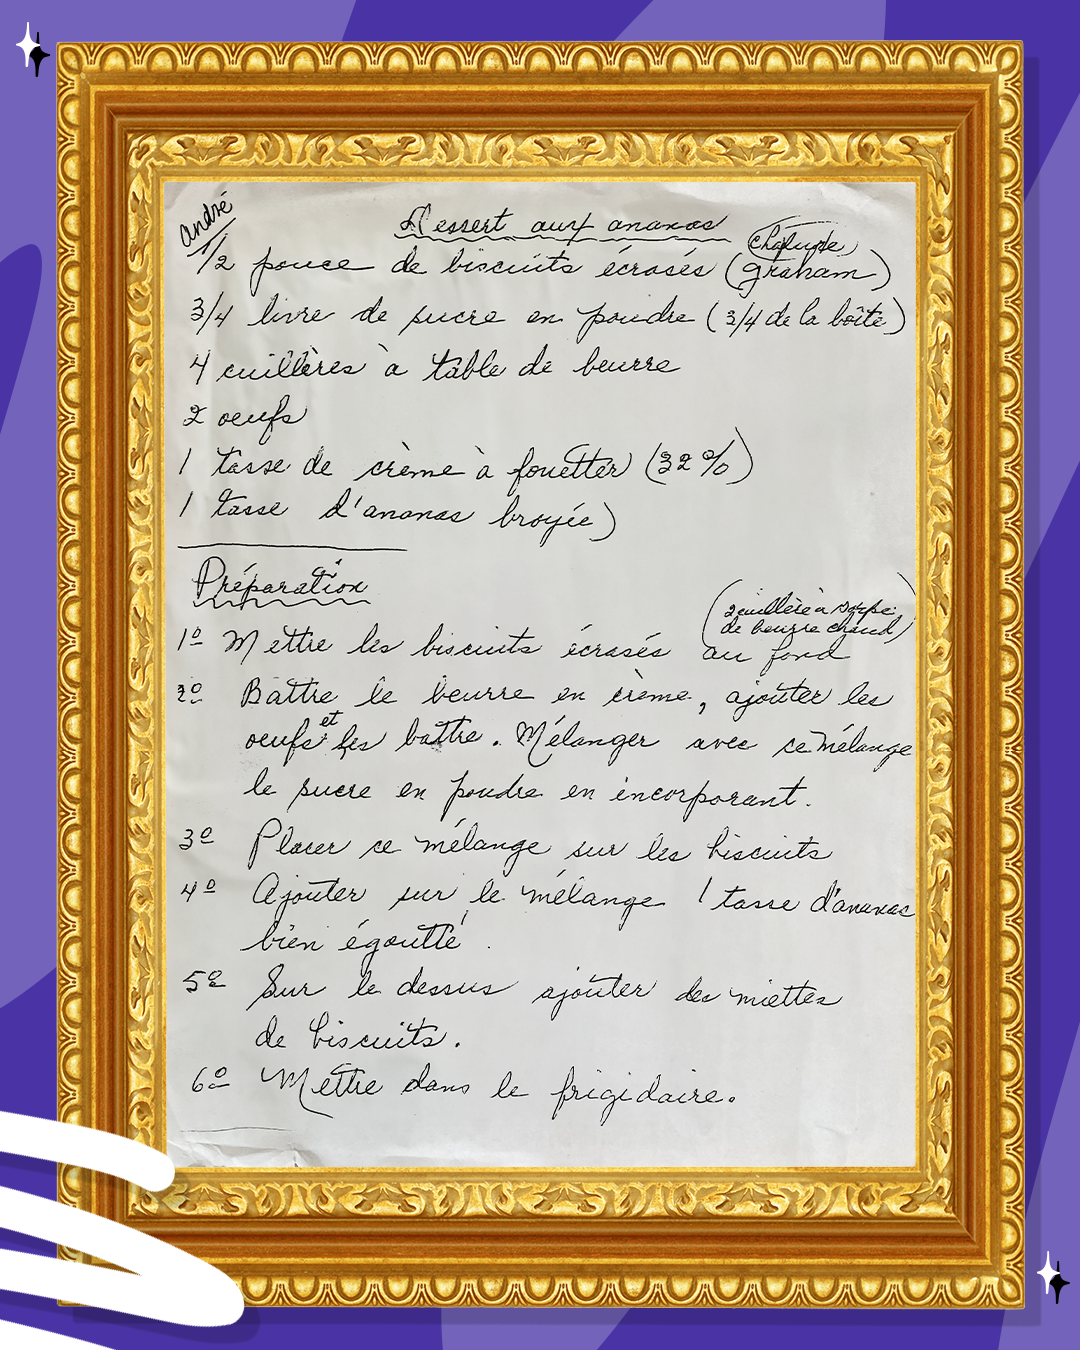 André
Dessert aux ananas
chapelure
1/2 pouce de biscuits écrasés (graham)
3/4 livre de sucre en poudre (3/4 de la boîte)
4 cuillères à table de beurre
2 oeufs
1 tasse de crème à fouetter (32%)
1 tasse d'ananas broyée)
Préparation
(2 cuillère à soupe
de beurre chaud)
1º Mettre les biscuits écrasés au fond
2º Battre le beurre en crème, ajouter les
oeufs et les battre. Mélanger avec ce mélange
le sucre en poudre en incorporant.
3º Placer ce mélange sur les biscuits
4º Ajouter sur le mélange 1 tasse d'ananas
bien égoutté.
5º Sur le dessus ajouter des miettes
de biscuits.
6º Mettre dans le frigidaire.